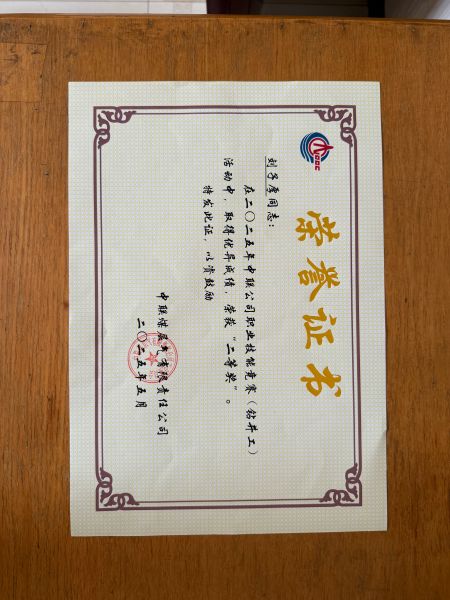 CNOOC
荣誉证书
刘子彦同志：
在二〇二五年中联公司职业技能竞赛（钻井工）
活动中，取得优异成绩，荣获“二等奖”。
特发此证，以资鼓励
中联煤层气有限责任公司
二〇二五年五月